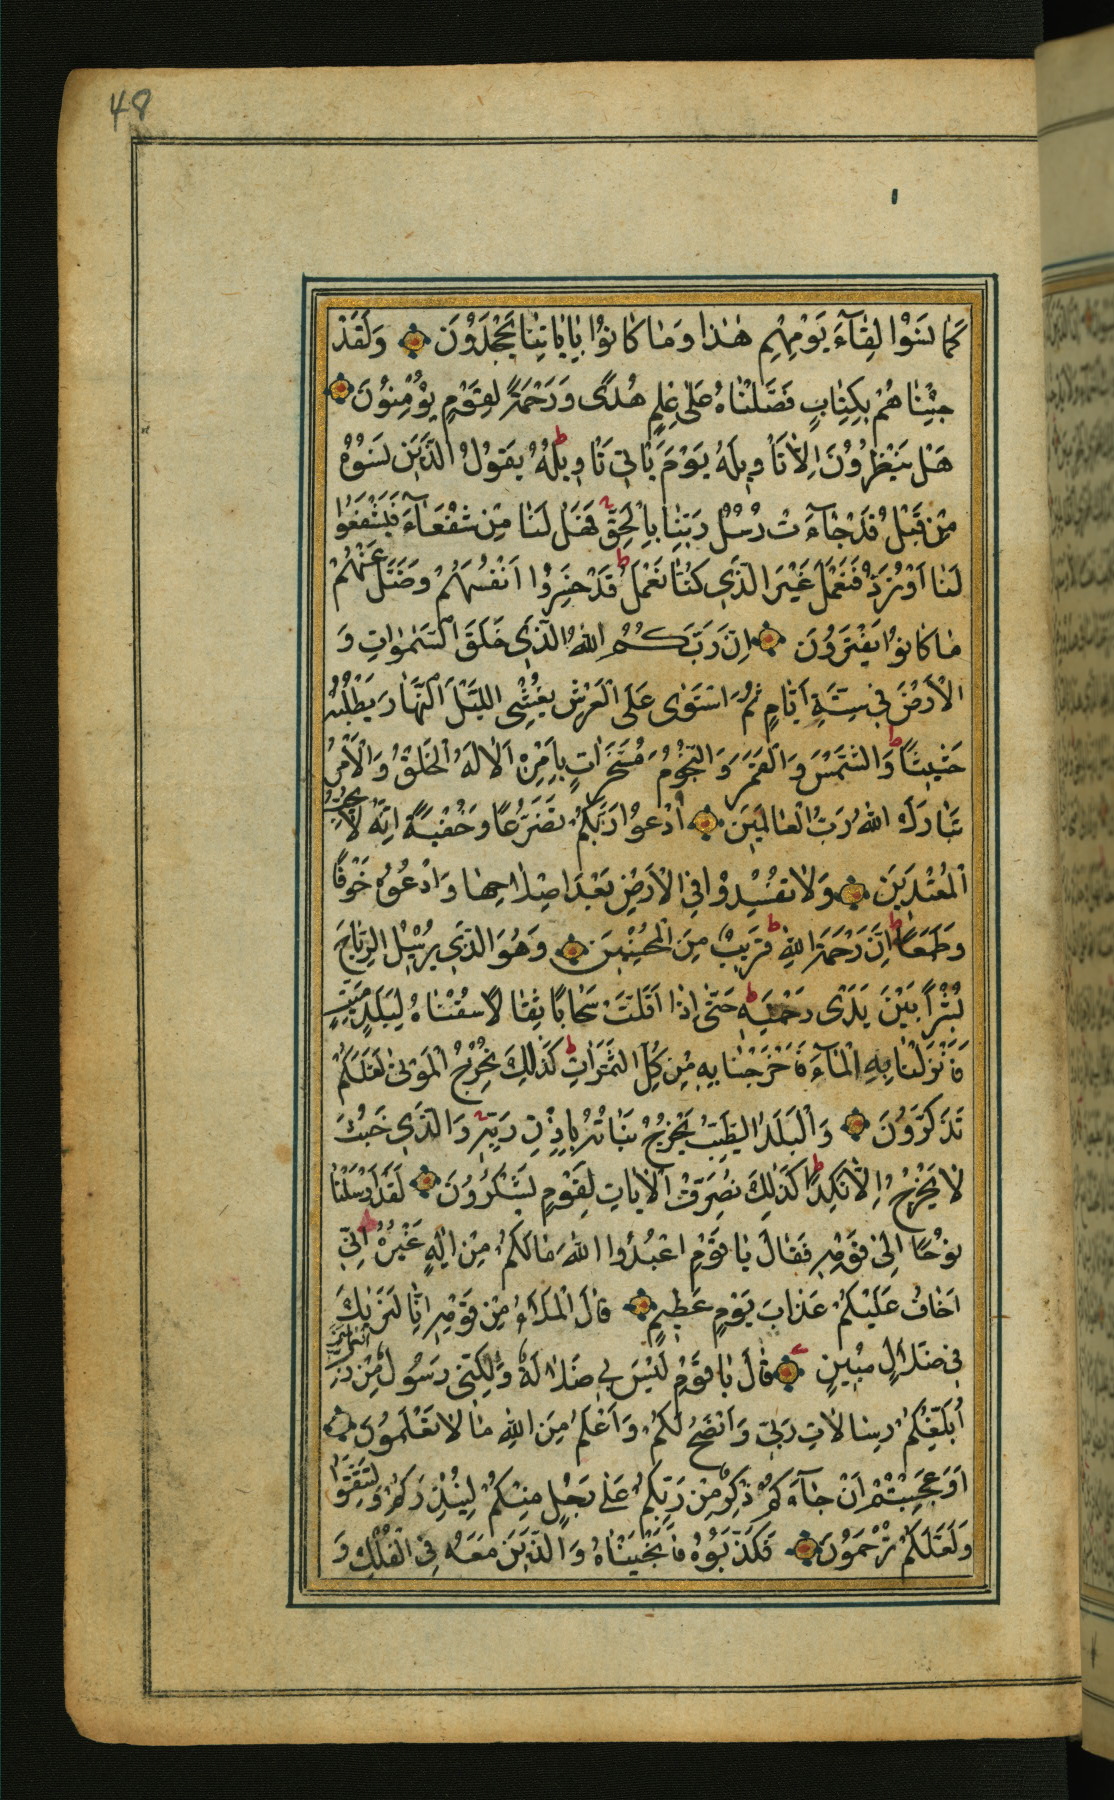 48
١
كَمَا نَسُوا لِقَآءَ يَوْمِهِمْ هٰذَا وَمَا كَانُوا بِاٰيَاتِنَا يَجْحَدُونَ وَلَقَدْ
جِئْنَاهُمْ بِكِتَابٍ فَصَّلْنَاهُ عَلٰى عِلْمٍ هُدًى وَرَحْمَةً لِقَوْمٍ يُؤْمِنُونَ
هَلْ يَنْظُرُونَ اِلَّا تَاْوِيلَهُ يَوْمَ يَاْتِى تَاْوِيلُهُ ط يَقُولُ الَّذِينَ نَسُوهُ
مِنْ قَبْلُ قَدْ جَآءَتْ رُسُلُ رَبِّنَا بِالْحَقِّ فَهَلْ لَنَا مِنْ شُفَعَآءَ فَيَشْفَعُوا
لَنَا اَوْ نُرَدُّ فَنَعْمَلَ غَيْرَ الَّذِى كُنَّا نَعْمَلُ ط قَدْ خَسِرُوا اَنْفُسَهُمْ وَضَلَّ عَنْهُمْ
مَا كَانُوا يَفْتَرُونَ اِنَّ رَبَّكُمُ اللهُ الَّذِى خَلَقَ السَّمٰوَاتِ وَ
الْاَرْضَ فِى سِتَّةِ اَيَّامٍ ثُمَّ اسْتَوٰى عَلَى الْعَرْشِ يُغْشِى اللَّيْلَ النَّهَارَ يَطْلُبُهُ
حَثِيثًا ط وَالشَّمْسَ وَالْقَمَرَ وَالنُّجُومَ مُسَخَّرَاتٍ بِاَمْرِهِ اَلَا لَهُ الْخَلْقُ وَالْاَمْرُ
تَبَارَكَ اللهُ رَبُّ الْعَالَمِينَ اُدْعُوا رَبَّكُمْ تَضَرُّعًا وَخُفْيَةً اِنَّهُ لَا يُحِبُّ
الْمُعْتَدِينَ وَلَا تُفْسِدُوا فِى الْاَرْضِ بَعْدَ اِصْلَاحِهَا وَادْعُوهُ خَوْفًا
وَطَمَعًا ط اِنَّ رَحْمَةَ اللهِ قَرِيبٌ مِنَ الْمُحْسِنِينَ وَهُوَ الَّذِى يُرْسِلُ الرِّيَاحَ
بُشْرًا بَيْنَ يَدَىْ رَحْمَتِهِ ط حَتّٰى اِذَا اَقَلَّتْ سَحَابًا ثِقَالًا سُقْنَاهُ لِبَلَدٍ مَيِّتٍ
فَاَنْزَلْنَا بِهِ الْمَآءَ فَاَخْرَجْنَا بِهِ مِنْ كُلِّ الثَّمَرَاتِ ط كَذٰلِكَ نُخْرِجُ الْمَوْتٰى لَعَلَّكُمْ
تَذَكَّرُونَ وَالْبَلَدُ الطَّيِّبُ يَخْرُجُ نَبَاتُهُ بِاِذْنِ رَبِّهِ وَالَّذِى خَبُثَ
لَا يَخْرُجُ اِلَّا نَكِدًا ط كَذٰلِكَ نُصَرِّفُ الْاٰيَاتِ لِقَوْمٍ يَشْكُرُونَ لَقَدْ اَرْسَلْنَا
نُوحًا اِلٰى قَوْمِهِ فَقَالَ يَا قَوْمِ اعْبُدُوا اللهَ مَا لَكُمْ مِنْ اِلٰهٍ غَيْرُهُ اِنِّى
اَخَافُ عَلَيْكُمْ عَذَابَ يَوْمٍ عَظِيمٍ قَالَ الْمَلَاُ مِنْ قَوْمِهِ اِنَّا لَنَرٰيكَ
فِى ضَلَالٍ مُبِينٍ قَالَ يَا قَوْمِ لَيْسَ بِى ضَلَالَةٌ وَلٰكِنِّى رَسُولٌ مِنْ رَبِّ الْعَالَمِينَ
اُبَلِّغُكُمْ رِسَالَاتِ رَبِّى وَاَنْصَحُ لَكُمْ وَاَعْلَمُ مِنَ اللهِ مَا لَا تَعْلَمُونَ
اَوَعَجِبْتُمْ اَنْ جَآءَكُمْ ذِكْرٌ مِنْ رَبِّكُمْ عَلٰى رَجُلٍ مِنْكُمْ لِيُنْذِرَكُمْ وَلِتَتَّقُوا
وَلَعَلَّكُمْ تُرْحَمُونَ فَكَذَّبُوهُ فَاَنْجَيْنَاهُ وَالَّذِينَ مَعَهُ فِى الْفُلْكِ وَ